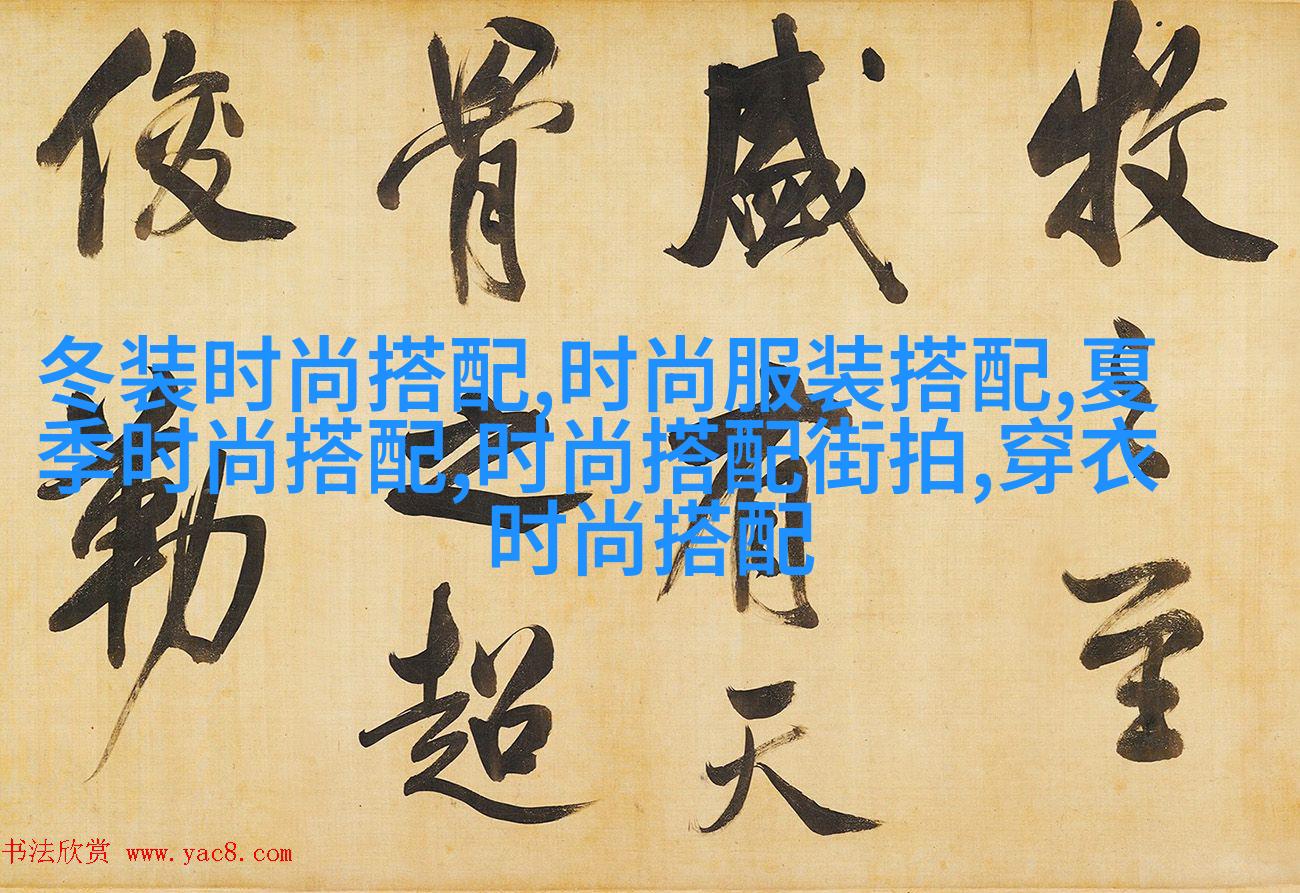 牧至
盛有天
骨之超
俊勒
冬装时尚搭配,时尚服装搭配,夏
季时尚搭配,时尚搭配街拍,穿衣
时尚搭配
书法欣赏 www.yac8.com